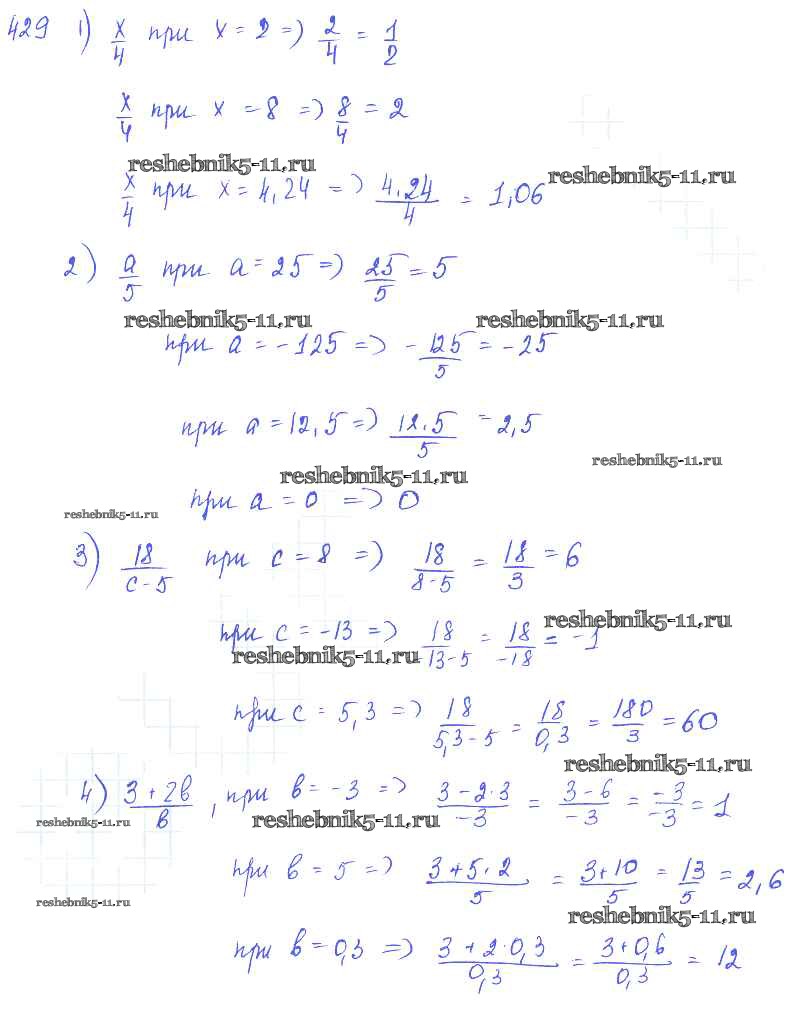 429 1) x/4 при x = 2 => 2/4 = 1/2
x/4 при x = 8 => 8/4 = 2
reshebnik5-11.ru
reshebnik5-11.ru
x/4 при x = 4,24 => 4,24/4 = 1,06
2) a/5 при a = 25 => 25/5 = 5
reshebnik5-11.ru reshebnik5-11.ru
при a = -125 => -125/5 = -25
при a = 12,5 => 12,5/5 = 2,5
reshebnik5-11.ru
reshebnik5-11.ru
при a = 0 => 0
reshebnik5-11.ru
3) 18/(c-5) при c = 8 => 18/(8-5) = 18/3 = 6
reshebnik5-11.ru
при c = -13 => 18/(-13-5) = 18/-18 = -1
reshebnik5-11.ru
при c = 5,3 => 18/(5,3-5) = 18/0,3 = 180/3 = 60
reshebnik5-11.ru
4) (3+2в)/в, при в = -3 => (3-2·3)/-3 = (3-6)/-3 = -3/-3 = 1
reshebnik5-11.ru reshebnik5-11.ru
при в = 5 => (3+5·2)/5 = (3+10)/5 = 13/5 = 2,6
reshebnik5-11.ru
reshebnik5-11.ru
при в = 0,3 => (3+2·0,3)/0,3 = (3+0,6)/0,3 = 12